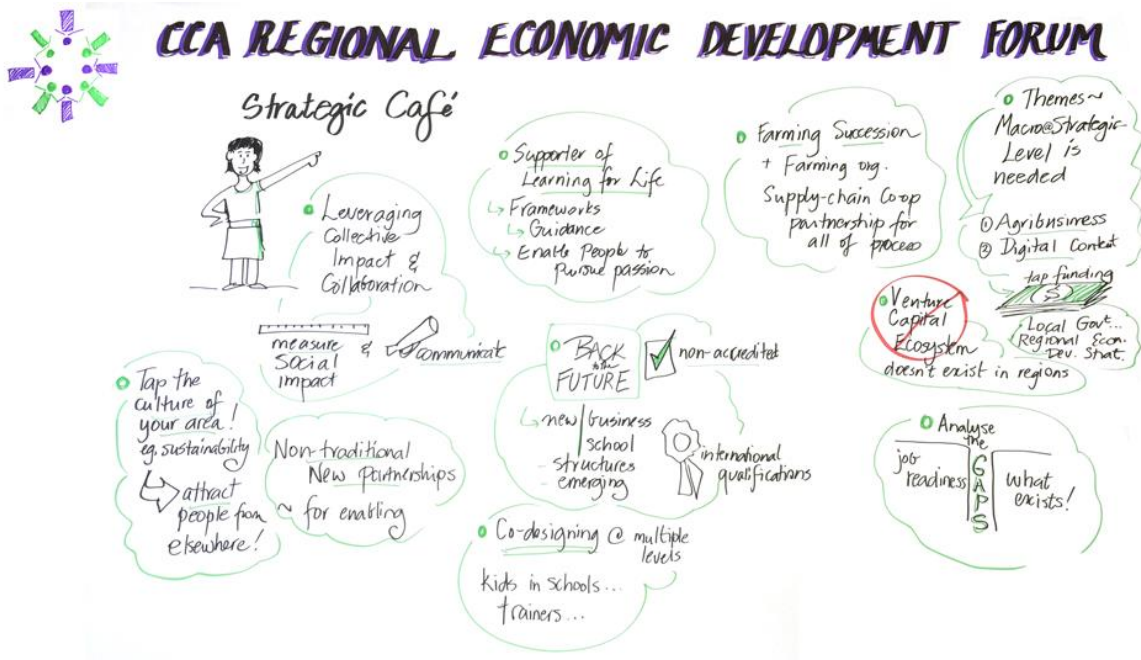 CCA REGIONAL ECONOMIC DEVELOPMENT FORUM
Strategic Café
Leveraging
Collective
Impact &
Collaboration
measure
Social
impact
&
communicate
Tap the
culture of
your area!
eg. sustainability
attract
people from
elsewhere!
Non-traditional
New Partnerships
~ for enabling
Supporter of
Learning for Life
Frameworks
Guidance
Enable People to
Pursue passion
BACK
to the
FUTURE
non-accredited
new/business
school
- structures
emerging
international
qualifications
Co-designing @ multiple
levels
kids in schools...
trainers...
Farming Succession
+ Farming org.
Supply-chain Co-op
partnership for
all of process
Themes ~
Macro@Strategic
Level is
needed
① Agribusiness
② Digital Context
tap funding
$
Local Govt...
Regional Econ.
Dev. Strat.
Venture
Capital
Ecosystem
doesn't exist in regions
Analyse
the
GAPS
job
readiness
what
exists!